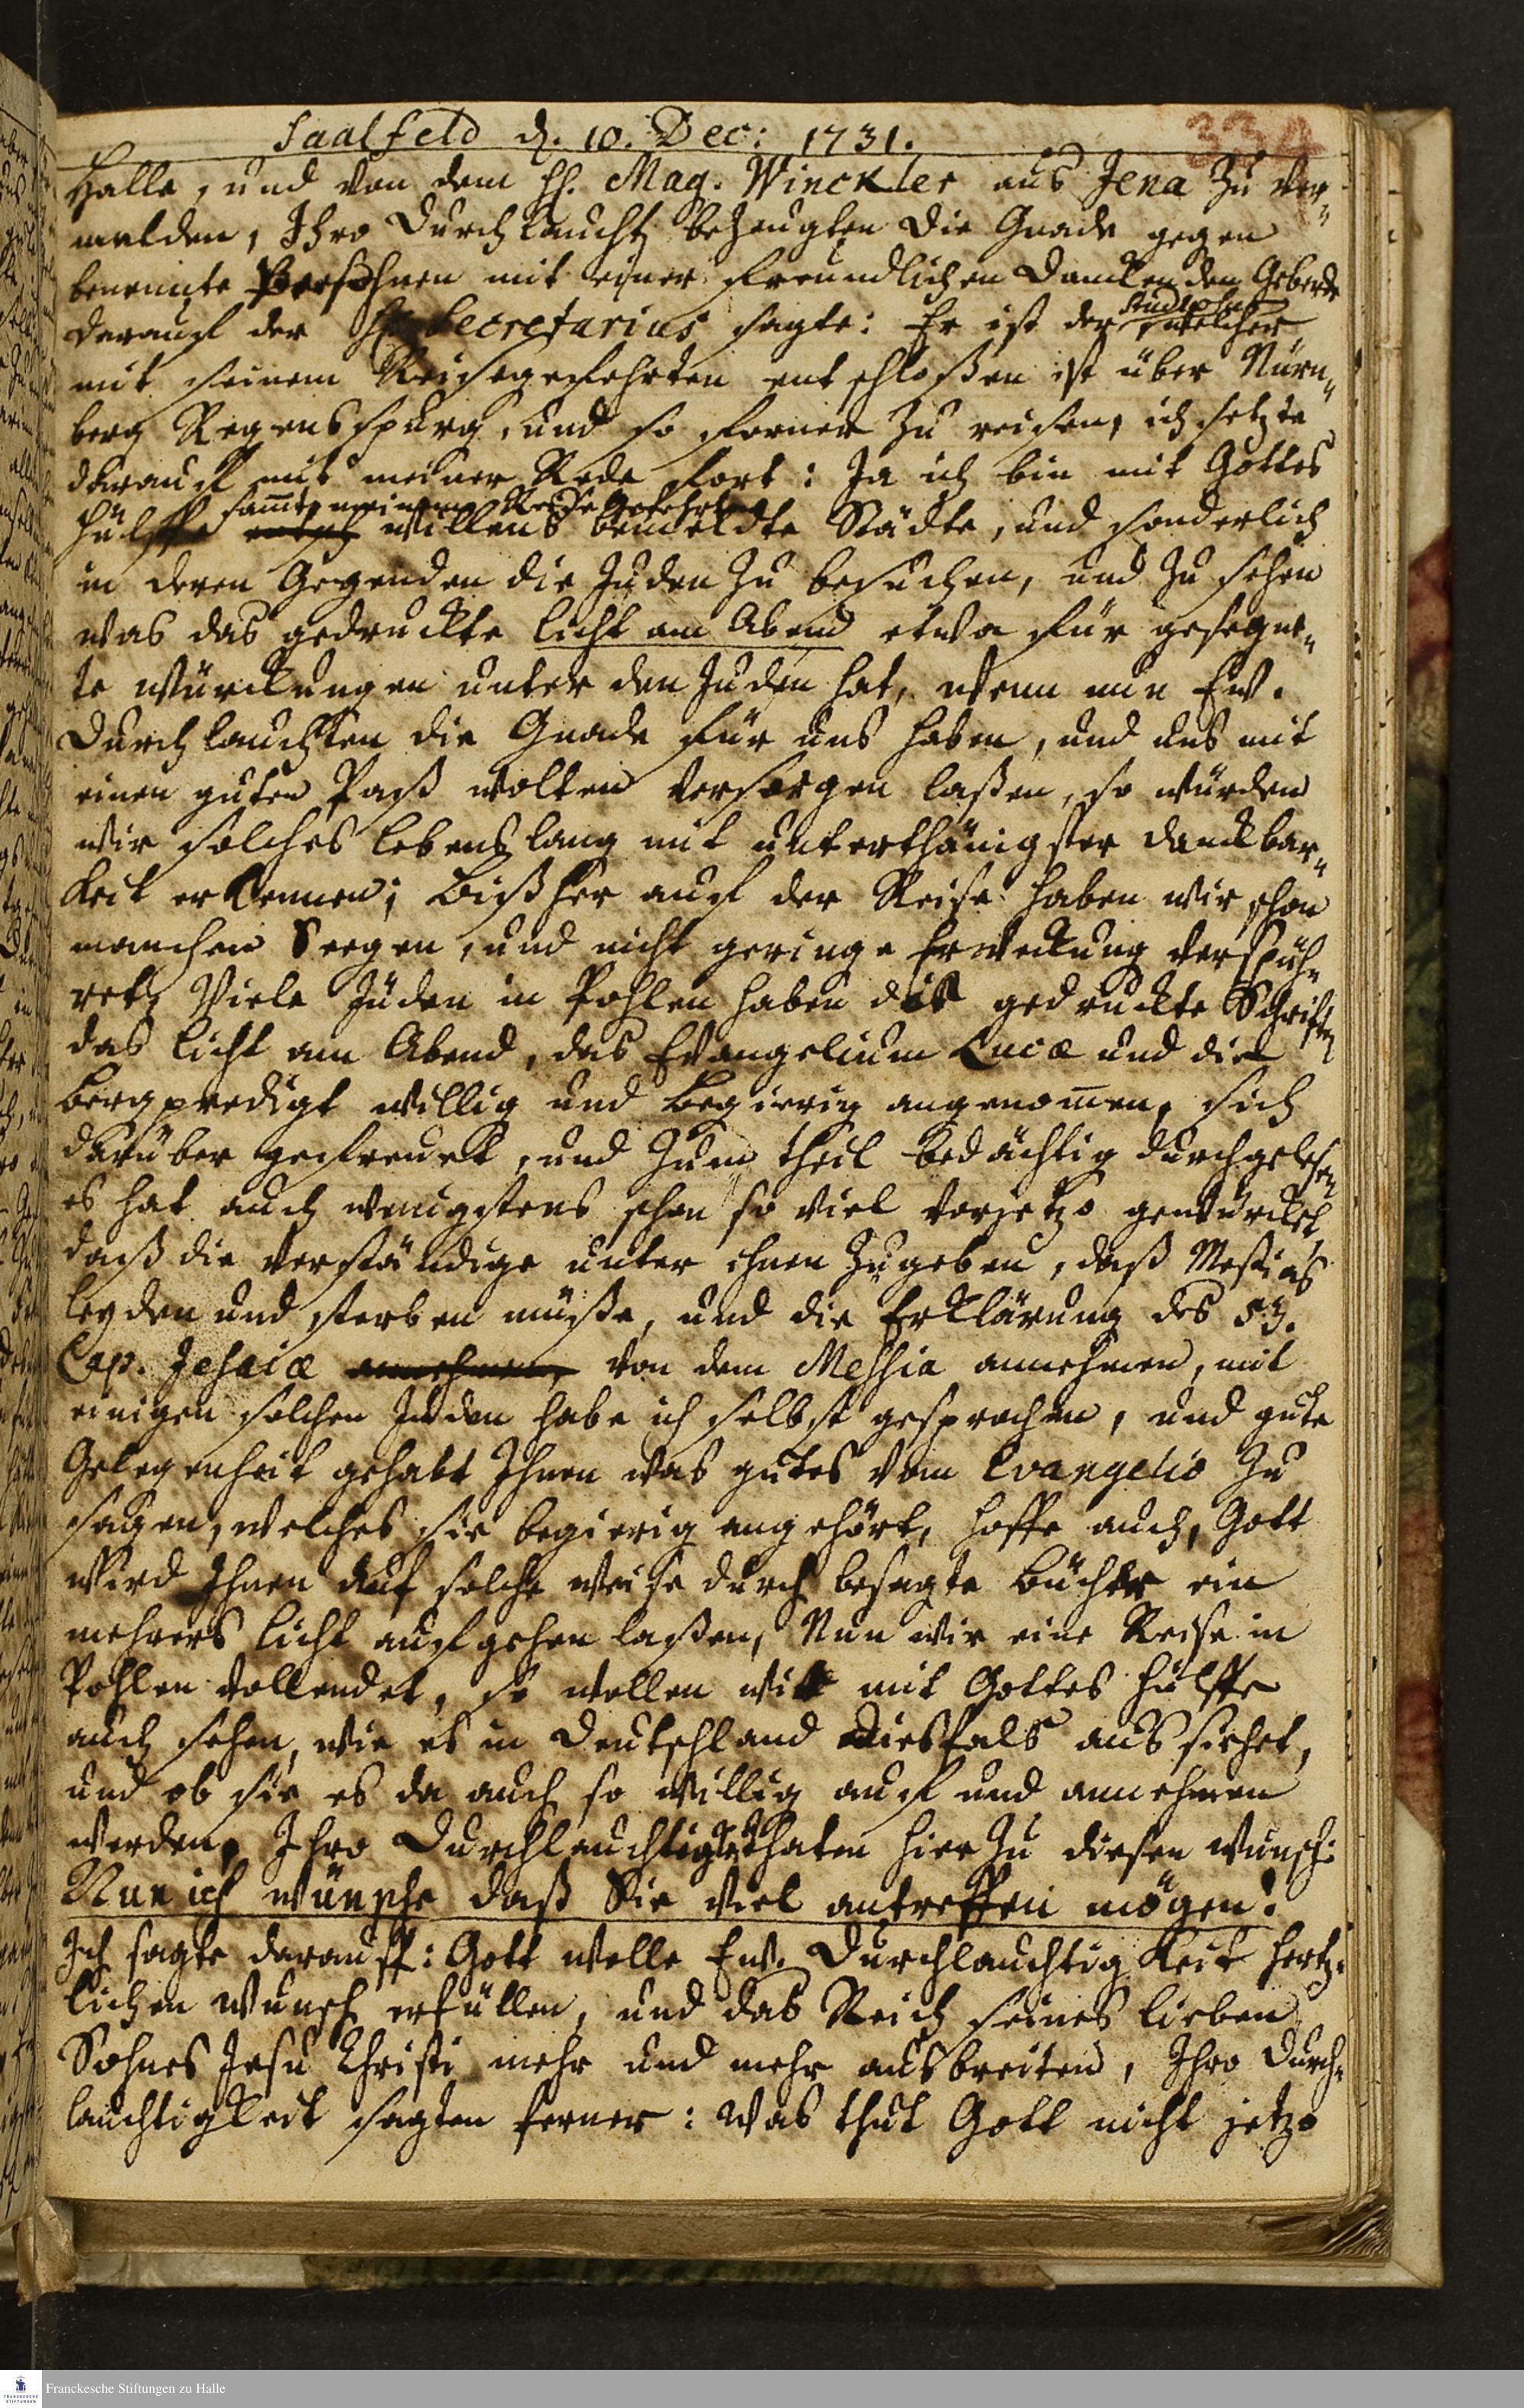 Saalfeld d. 10. Dec: 1731.
334
Halle, und von dem H. Mag. Winckler aus Jena zu ver-
melden, Ihro Durchlaucht bezeugten die Gnade gegen
benennte Persohnen mit einer freundlichen danckenden Geberde
darauf der H. Secretarius sagte: Er ist der Studiosus, welcher
mit seinem Reisegefehrten entschloßen ist über Nürn-
berg Regenspurg, und so ferner zu reisen, ich setzte
darauf mit meiner Rede fort: Ja ich bin mit Gottes
sammt meinem Reise Gefehrten
Hülffe willens bemeldte Städte, und sonderlich
in deren Gegenden die Juden zu besuchen, und zu sehen
was das gedruckte Licht am Abend etwa für gesegne-
te würckungen unter den Juden hat, wenn nun Ew.
Durchlauchten die Gnade für uns haben, und uns mit
einen guten Paß wolten versorgen laßen, so würden
wir solches lebenslang mit unterthänigster danckbar-
keit erkennen; Bißher auf der Reise haben wir schon
manchen Seegen, und nicht geringe Erweckung verspüh-
ret, Viele Jüden in Pohlen haben die gedruckte Schrifften
das Licht am Abend, das Evangelium Lucæ und die
Bergpredigt willig und begierig angenommen, sich
darüber gefreuet, und zum theil bedächtig durchgelesen
es hat auch wenigstens schon so viel vorjetzo gewürcket,
daß die verständige unter ihnen zugeben, daß Meßias
leyden und sterben müße, und die Erklärung des 53.
Cap. Jesaiæ annehmen, von dem Messia annehmen, mit
einigen solchen Juden habe ich selbst gesprochen, und gute
Gelegenheit gehabt Ihnen was gutes vom Evangelio zu
sagen, welches sie begierig angehört, hoffe auch, Gott
wird Ihnen auf solche weise durch besagte Bücher ein
mehrers Licht aufgehen laßen, Nun wir eine Reise in
Pohlen vollendet, so wollen wir mit Gottes Hülffe
auch sehen, wie es in Deutschland diesfals aussiehet,
und ob sie es da auch so willig auf und annehmen
werden, Ihro Durchlauchtigkeit thaten hier zu diesen wunsch:
Nun ich wünsche daß Sie viel antreffen mögen!
Ich sagte darauff: Gott wolle Ew. Durchlauchtigkeit hertz-
lichen wunsch erfüllen, und das Reich seines lieben
Sohnes Jesu Christi mehr und mehr ausbreiten, Ihro Durch-
lauchtigkeit sagten ferner: was thut Gott nicht jetzo
Franckesche Stiftungen zu Halle